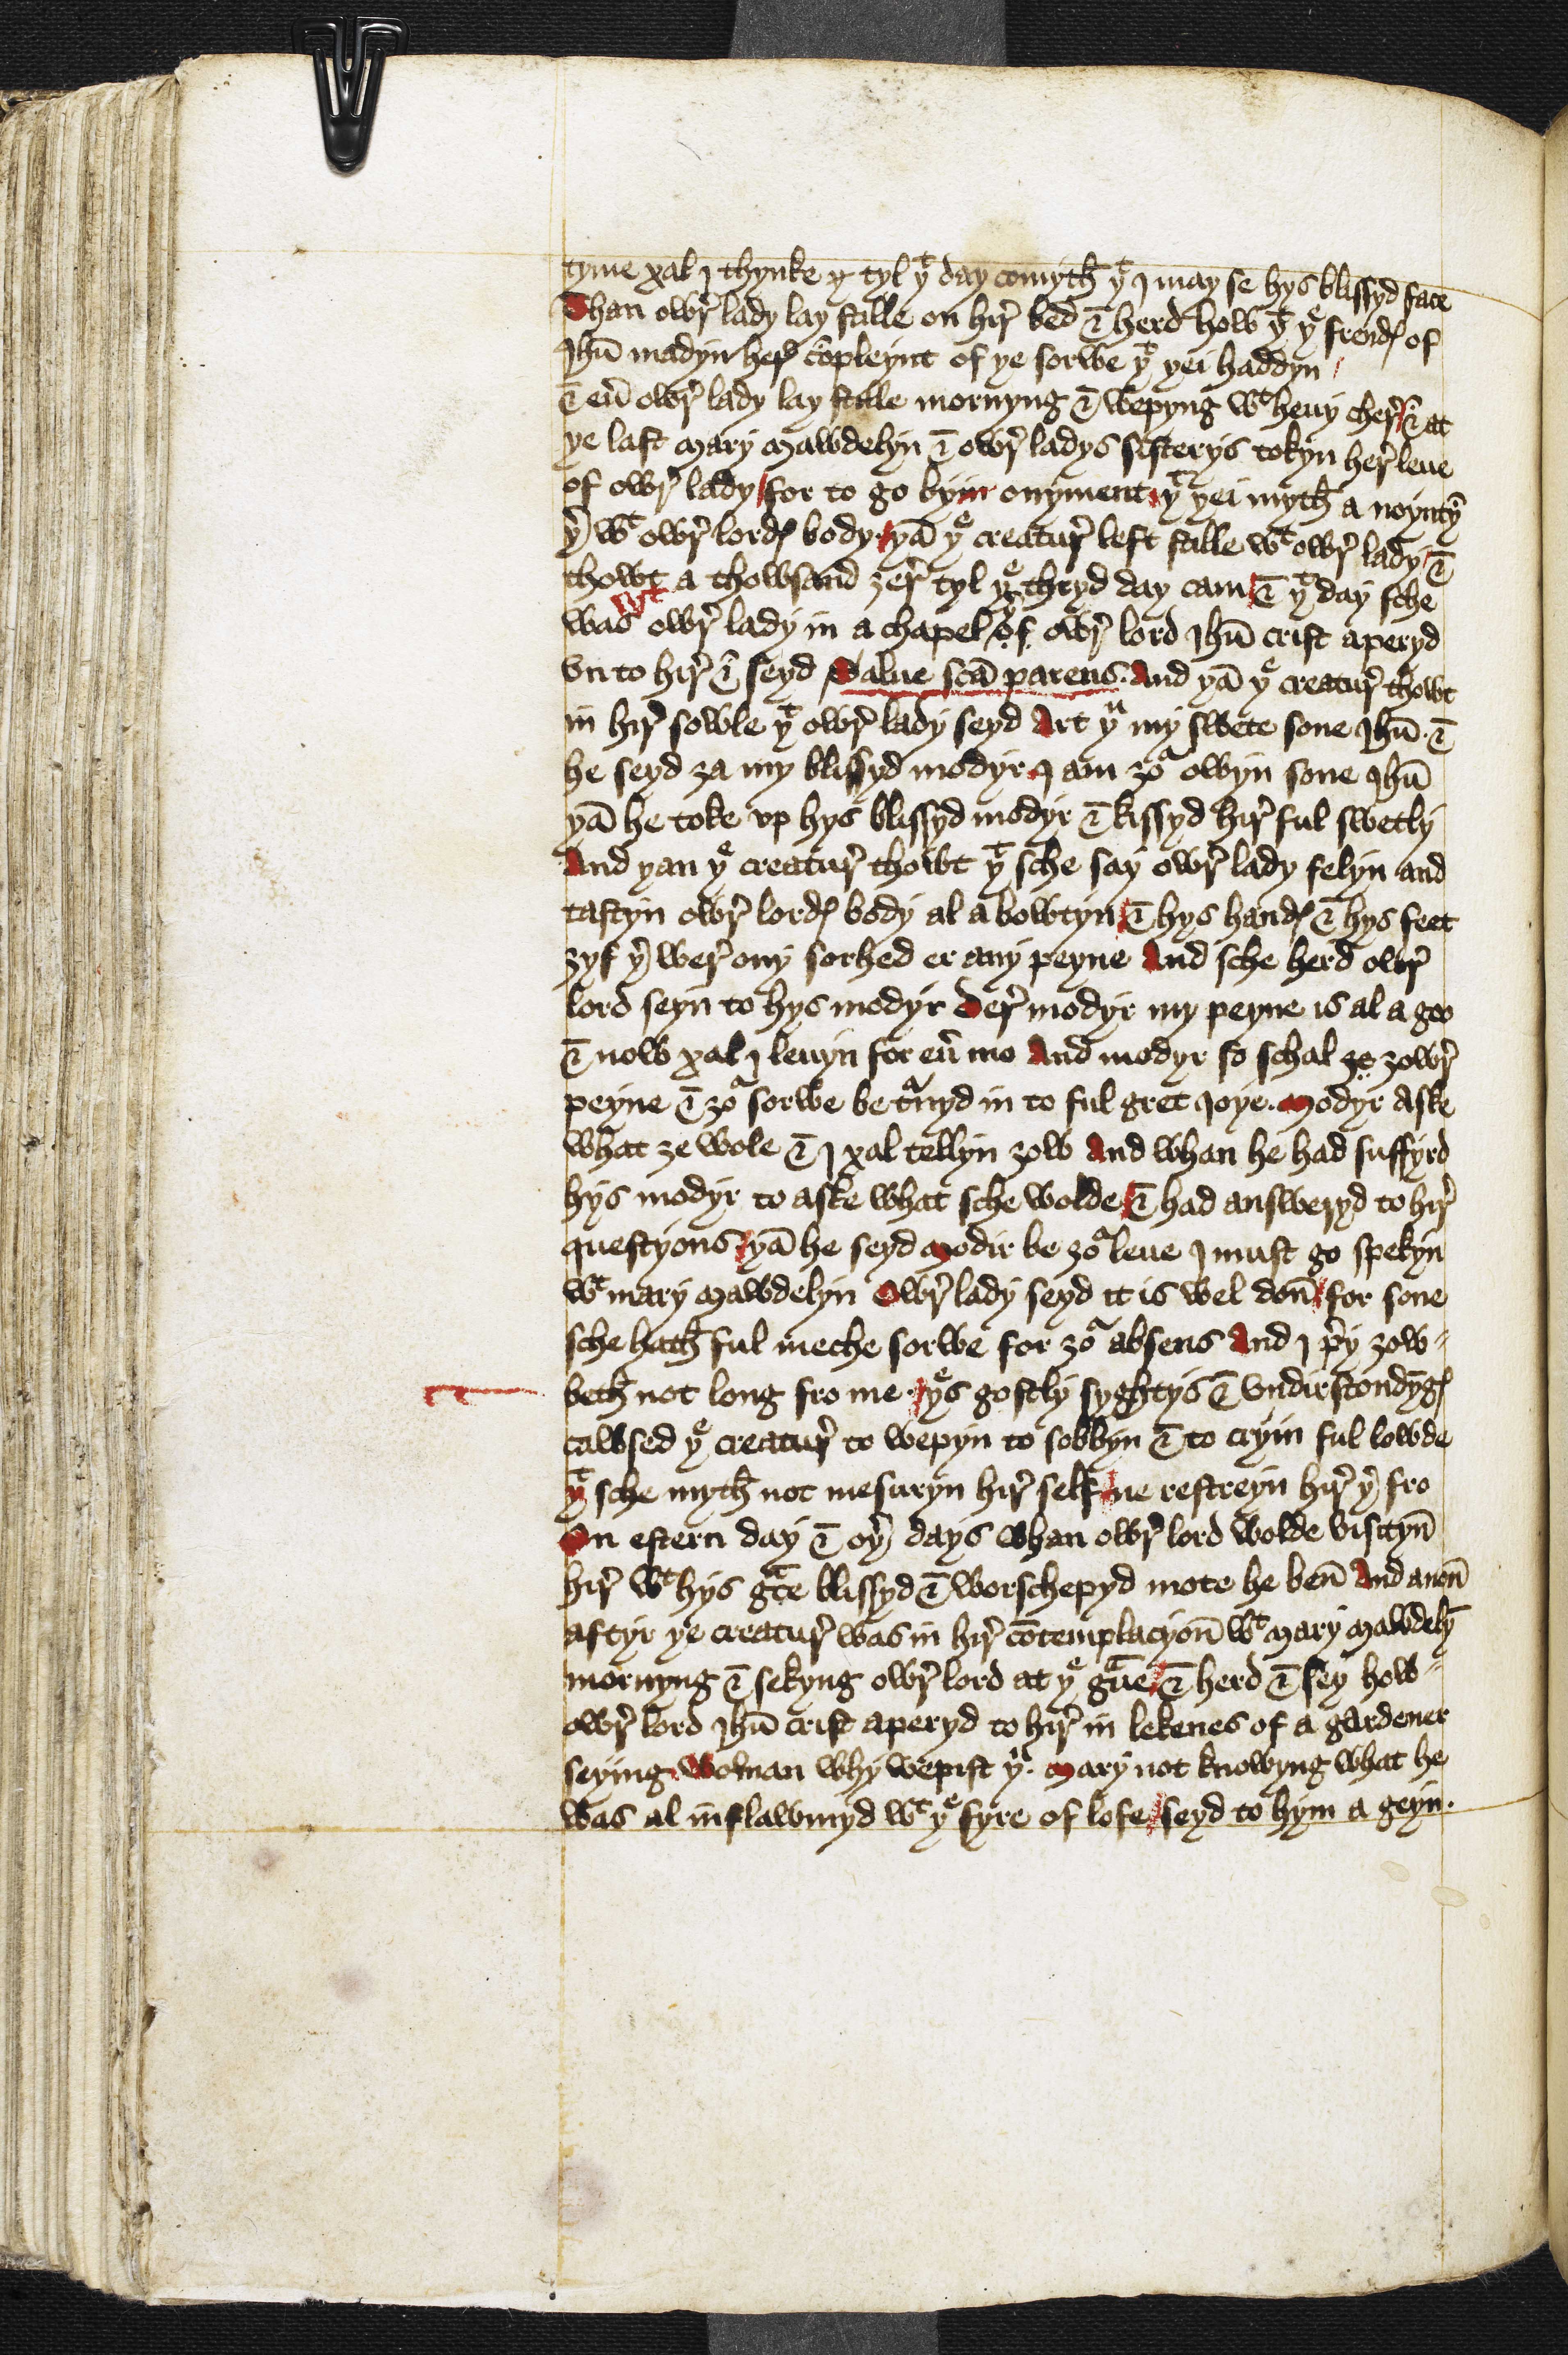 tyme xal I thynke yͭ tyl yͭ day comyth yͭ I may se hys blissyd face
Than owr̛ lady lay stille on hir̛ bed & herd how yͭ yͤ frendꝭ of
Ihū madyn her̛ cōpleynt of ye sorwe yͭ yei haddyn /
& eū owr̛ lady lay stille mornyng & wepyng wͭ heuy cher̛ & at
ye last Mary Mawdelyn & owr̛ ladys sisterys tokyn her̛ leue
of owr̛ lady / for to go byin onyment / yͭ yei myth a noyntyn̄
y̛ wͭ owr̛ lordꝭ body / yā yͤ creatur̛ left stille wͭ owr̛ lady / &
thowt a thowsand ȝer̛ tyl yͤ thryd day cam / & yͭ day sche
was wͭ owr̛ lady in a chapel yer̛ owr̛ lord Ihū crist aperyd
vn to hir̛ & seyd Salue scā parens. And yā yͤ creatur̛ thowt
in hir̛ sowle yͭ owr̛ lady seyd Art yͧ my swete sone Ihū. &
he seyd ȝa my blissyd modyr I am ȝoᷓ owyn sone Ihū
yā he toke vp hys blissyd modyr & kissyd hir̛ ful swetly
And yan yͤ creatur̛ thowt yͭ sche say owr̛ lady felyn and
tastyn owr̛ lordꝭ body al a bowtyn / & hys handꝭ & hys feet
ȝyf y̛ wer̛ ony sorhed er any peyne And sche herd owr̛
lord seyn to hys modyr Der̛ modyr my peyne is al a goo
& now xal I leuyn for eū mo And modyr so schal ȝe ȝowr̛
peyne & ȝoᷓ sorwe be tᷓnyd in to ful gret Ioye. Modyr aske
what ȝe wole & I xal tellyn ȝow And whan he had suffyrd
hys modyr to aske what sche wolde / & had answeryd to hir̛
questyons / yā he seyd Modir be ȝoᷓ leue I must go spekyn
wͭ Mary Mawdelyn Owr̛ lady seyd it is wel don̄ / for sone
sche hath ful meche sorwe for ȝoᷓ absens And I p̛y ȝow
beth not long fro me. / yͤs gostly syghtys & vndirstondyngꝭ
cawsed yͤ creatur̛ to wepyn to sobbyn & to cryin ful lowde
yͭ sche myth not mesuryn hir̛ self / ne restreyn hir̛ y̛ fro
On estern day & oy̛ days whan owr̛ lord wolde visityn̄
hir̛ wͭ hys gᷓce blissyd & worschepyd mote he ben̄ And anon̄
aftyr ye creatur̛ was in hir̛ cōtemplacyon̄ wͭ Mary Mawdelȳ
mornyng & sekyng owr̛ lord at yͤ gᷓue / & herd & sey how
owr̛ lord Ihū crist aperyd to hir̛ in lekenes of a gardener
seying Woman why wepist yͧ. Mary not knowyng what he
was al inflawmyd wͭ yͤ fyre of lofe / seyd to hym a geyn.